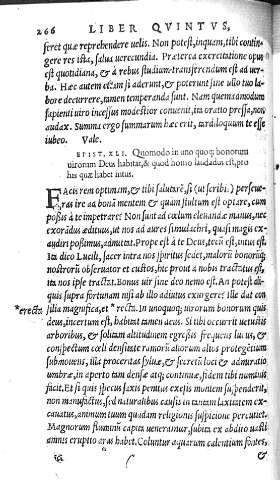 266 LIBER QVINTVS,
feret quæ reprehendere uelis. Non potest, inquam, tibi contin-
gere res ista, salua uerecundia. Præterea exercitatione opus
est quotidiana, & à rebus studium transferendum est ad uer-
ba. Hæc autem etiam si aderunt, & poterunt sine ullo tuo la-
bore decurrere, tamen temperanda sunt. Nam quemadmodum
sapienti uiro incessus modestior conuenit, ita oratio pressa, non
audax. Summa ergo summarum hæc erit, tardiloquum te esse
iubeo. Vale.
EPIST. XLI. Quomodo in uno quoq; bonorum
uirorum Deus habitat, & quod homo laudadus est, pro
his quæ habet intus.
FAcis rem optimam, & tibi salutarē, si (ut scribis) perseue-
ras ire ad bonā mentem & quam stultum est optare, cum
possis à te impetrare? Non sunt ad cœlum eleuandæ manus, nec
exorādus ædituus, ut nos ad aures simulachri, quasi magis ex-
audiri possimus, admittat. Prope est à te Deus, tecū est, intus est.
Ita dico Lucili, sacer intra nos spiritus sedet, malorū bonorūq;
nostrorū obseruator et custos, hic prout à nobis tractatus est,
ita nos ipse tractat. Bonus uir sine deo nemo est. An potest ali-
quis supra fortunam nisi ab illo adiutus exurgere? Ille dat con
*erecta silia magnifica, et * recta. In unoquoq; uirorum bonorum quis
deus, incertum est, habitat tamen deus. Si tibi occurrit uetustis
arboribus, & solitam altitudinem egressis frequens lucus, &
conspectum cœli densitate ramorū aliorum alios protegentium
submouens, illa proceritas syluæ, & secretū loci & admiratio
umbræ, in aperto tam densæ atq; continuæ, fidem tibi numinis
facit. Et si quis specus saxis penitus exesis montem suspenderit,
non manufactus, sed naturalibus causis in tantam laxitatem ex-
cauatus, animum tuum quadam religionis suspicione percutiet.
Magnorum fluminū capita ueneramur, subita ex abdito uasti
amnis eruptio aras habet. Coluntur aquarum calentium fontes,
&